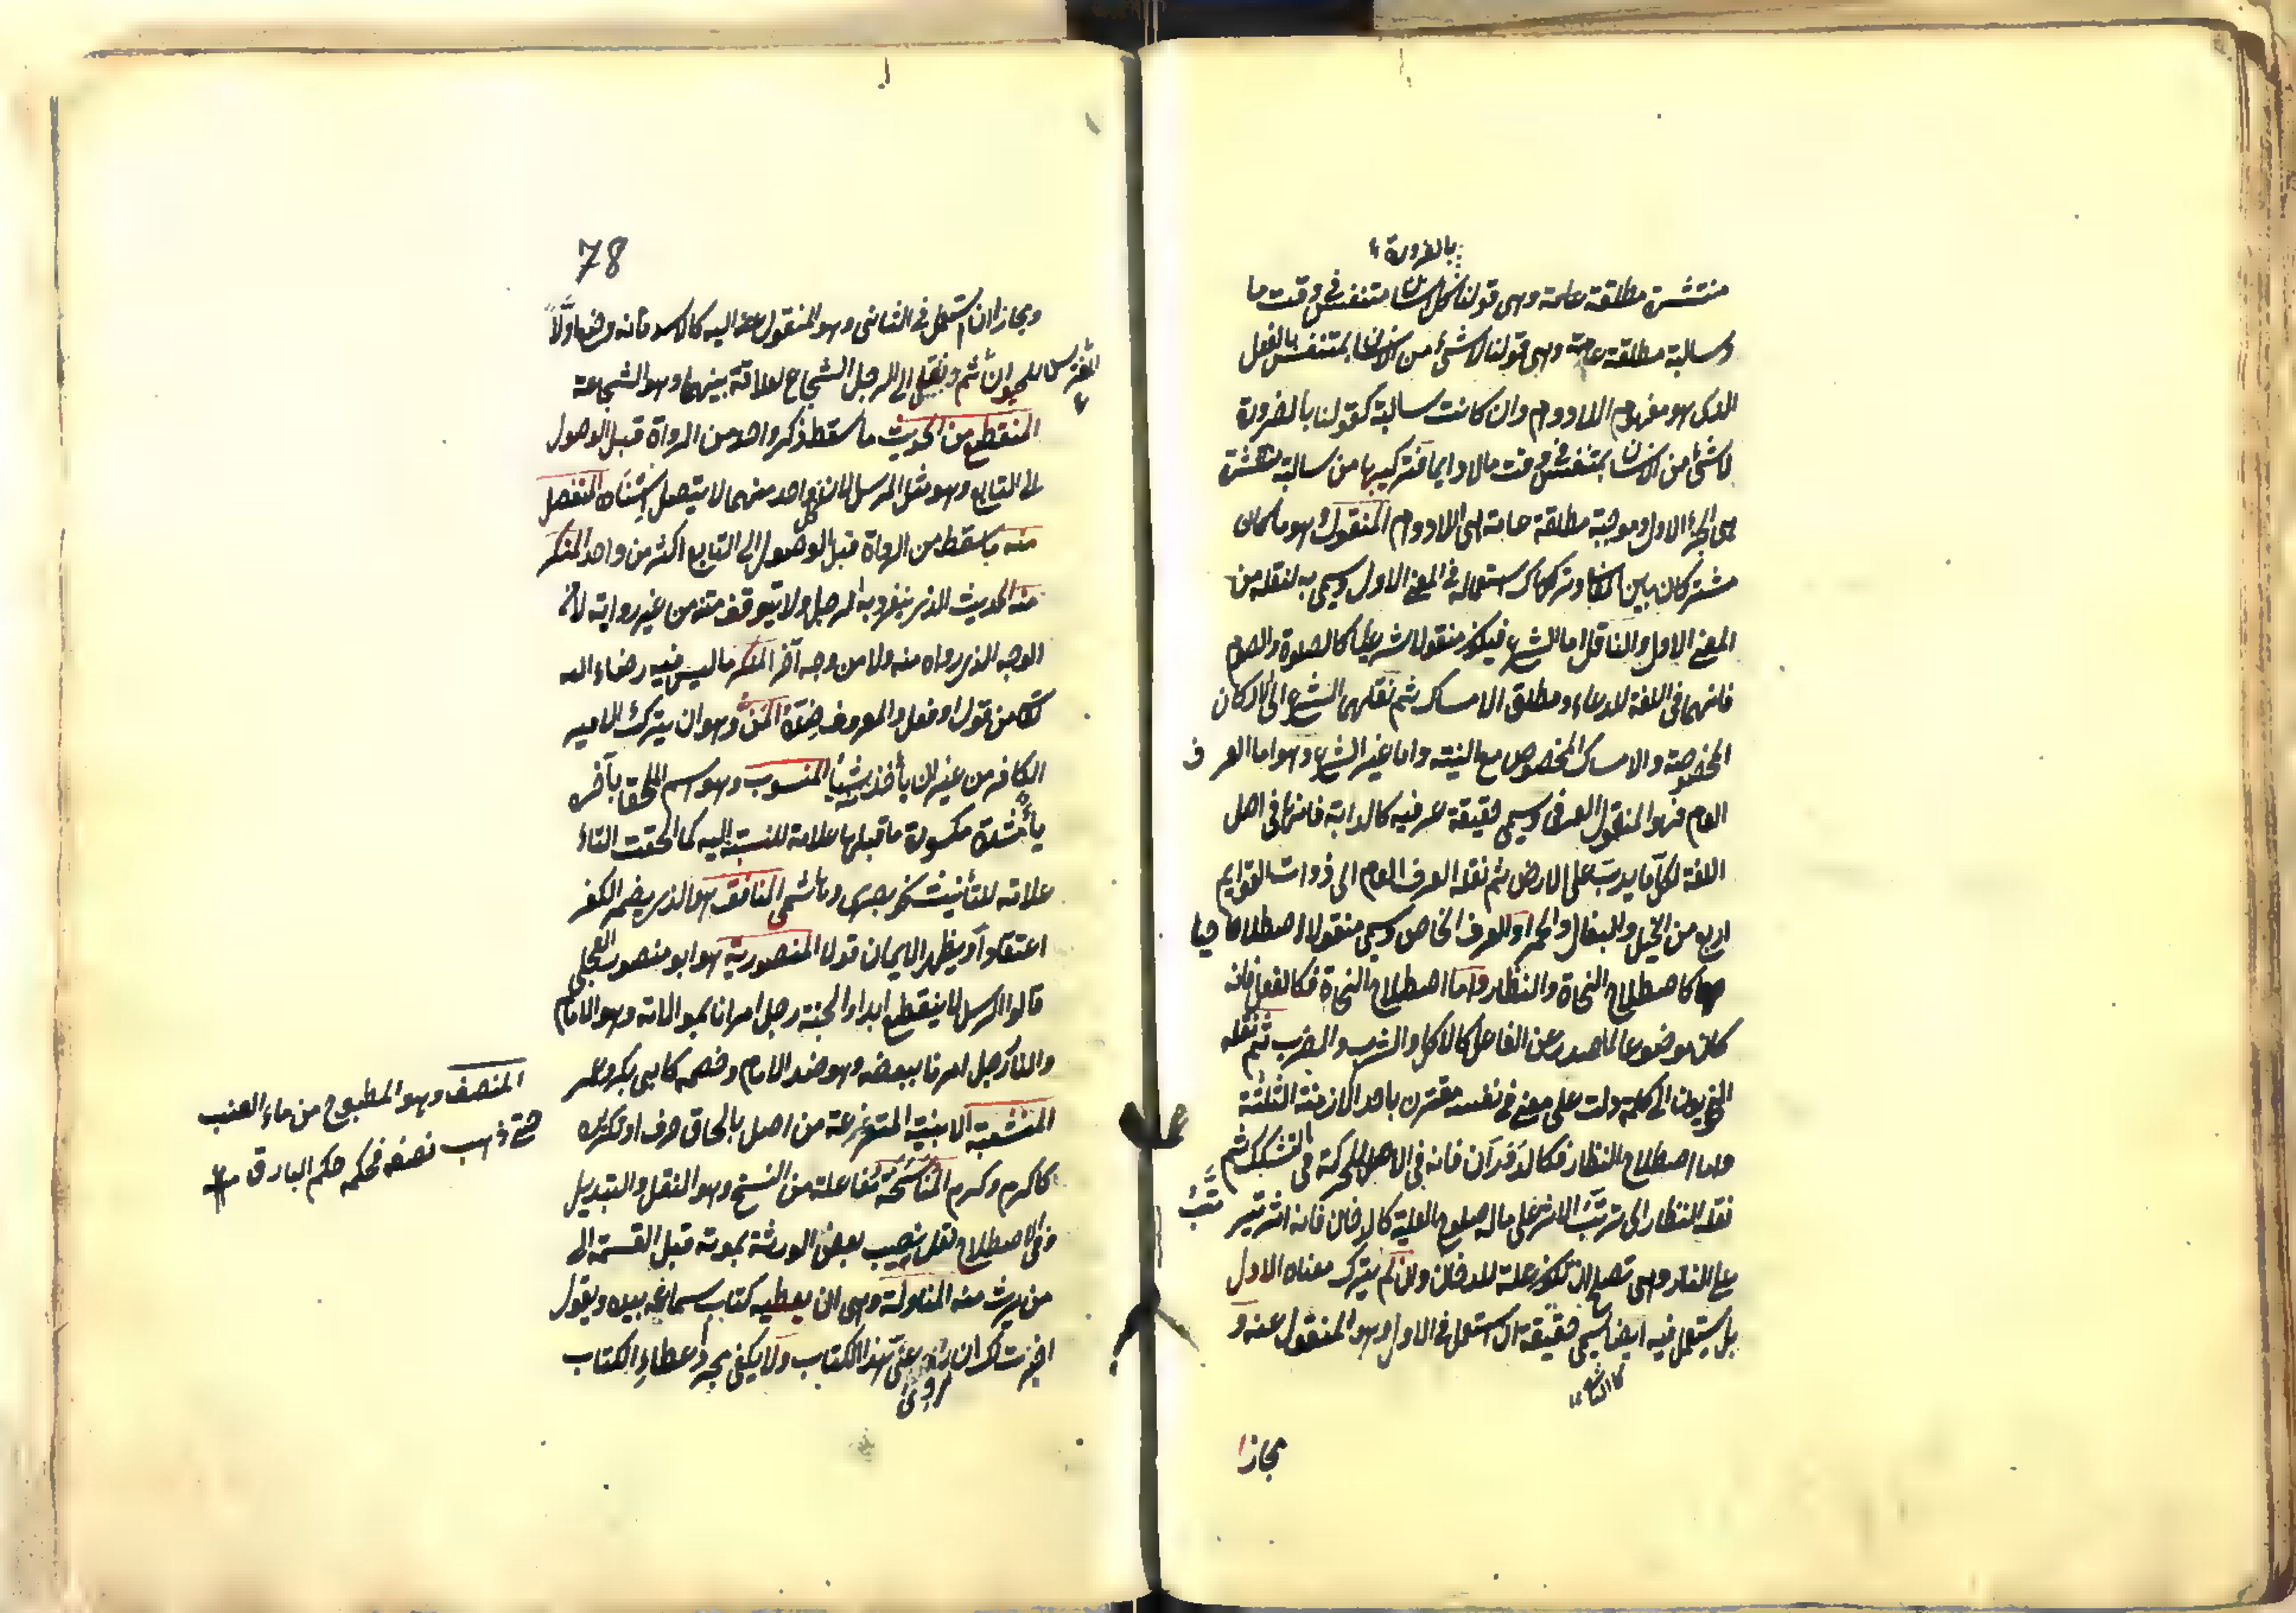 بالضرورة
منتشرة مطلقة عامة وهى قولنا كل انسان متنفس فى وقت ما
وسالبة مطلقة عامة وهى قولنا لا شئ من الانسان بمتنفس بالفعل
الذى هو مفهوم اللادوام وان كانت سالبة كقولنا بالضرورة
لا شئ من الانسان بمتنفس فى وقت ما لا دايما فتركيبها من سالبة منتشرة
هى الجزء الاول وموجبة مطلقة عامة هى اللادوام المنقول وهو ما كان
مشتركا بين المعانى وترك استعماله فى المعنى الاول ويسمى به لنقله من
المعنى الاول والناقل اما الشرع فيكون منقولا شرعيا كالصلوة والصوم
فانهما فى اللغة للدعاء ومطلق الامساك ثم نقلهما الشرع الى الاركان
المخصوصة والامساك المخصوص مع النية واما غير الشرع وهو اما العرف
العام فهو المنقول العرفى ويسمى حقيقة عرفية كالدابة فانها فى اصل
اللغة لكل ما يدب على الارض ثم نقله العرف العام الى ذوات القوايم
اربع من الخيل والبغال والحمير او العرف الخاص ويسمى منقولا اصطلاحيا
كاصطلاح النحاة والنظار واما اصطلاح النحاة فكالفعل فانه
كان موضوعا لما صدر عن الفاعل كالاكل والشرب والضرب ثم نقله
النحويون الى كلمة دلت على معنى فى نفسه مقترن باحد الازمنة الثلثة
واما اصطلاح النظار فكالدوران فانه فى الاصل للحركة فى السكك ثم
نقله النظار الى ترتب الاثر على ماله صلوح العلية كالدخان فانه اثر يترتب
على النار وهى تصلح ان تكون علة للدخان وان لم يترك معناه الاول
بل يستعمل فيه ايضا يسمى حقيقة ان استعمل فى الاول وهو المنقول عنه و
مجازا
78
ومجازا ان استعمل فى الثانى وهو المنقول اليه كالاسد فانه وضع اولا
للحيوان المفترس ثم نقل الى الرجل الشجاع لعلاقة بينهما وهو الشجاعة
المنقطع من الحديث ما سقط ذكر واحد من الرواة قبل الوصول
الى التابع وهو مثل المرسل لان كل واحد منهما لا يتصل اسناده المنفصل
منه ما سقط من الرواة قبل الوصول الى التابع اكثر من واحد المنكر
منه الحديث الذى ينفرد به الرجل ولا يتوقف متنه من غير روايته لا من
الوجه الذى رواه منه ولا من وجه آخر المنكر ما ليس فيه رضاء الله
تعالى من قول او فعل والمعروف ضده المن وهو ان يترك الامير
الكافر من غير ان يأخذ منه شيئا المنسوب وهو اسم الملحق بآخره
ياء مشددة مكسورة ما قبلها علامة للنسبة اليه كما الحقت التاء
علامة للتأنيث نحو بصرى وهاشمى المنافق هو الذى يضمر الكفر
اعتقادا ويظهر الايمان قولا المنصورية هو ابو منصور العجلى
قالوا الرسل لا ينقطع ابدا والجنة رجل امرنا بموالاته وهو الامام
والنار رجل امرنا ببغضه وهو ضد الامام وخصمه كابى بكر وعمر
المنشعبة الابنية المتفرعة من اصل بالحاق حرف او تكريره
كاكرم وكرم المناسخة مفاعلة من النسخ وهو النقل والتبديل
وفى الاصطلاح نقل نصيب بعض الورثة بموته قبل القسمة الى
من يرث منه المناولة وهى ان يعطيه كتاب سماعه بيده ويقول
اجزت لك ان تروى عنى هذا الكتاب ولا يكفى مجرد اعطاء الكتاب
المنصف وهو المطبوخ من ماء العنب
حتى ذهب نصفه فحكمه حكم الباذق